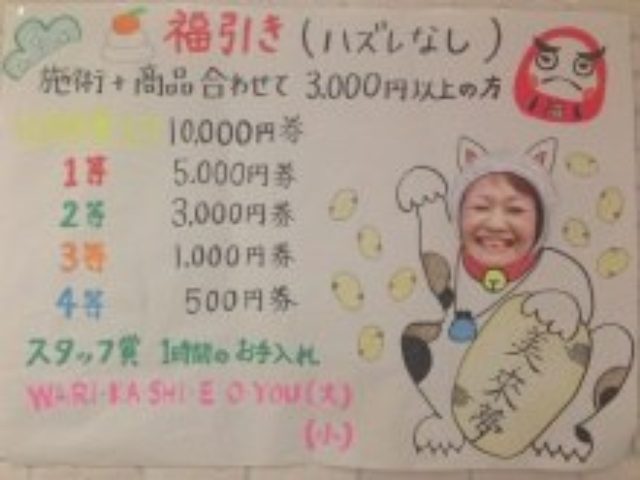 福引き (ハズレなし)
施術+商品合わせて 3,000円以上の方
10,000円券
1等 5,000円券
2等 3,000円券
3等 1,000円券
4等 500円券
スタッフ賞 1時間のお手入れ
(大)
(小)
美来夢